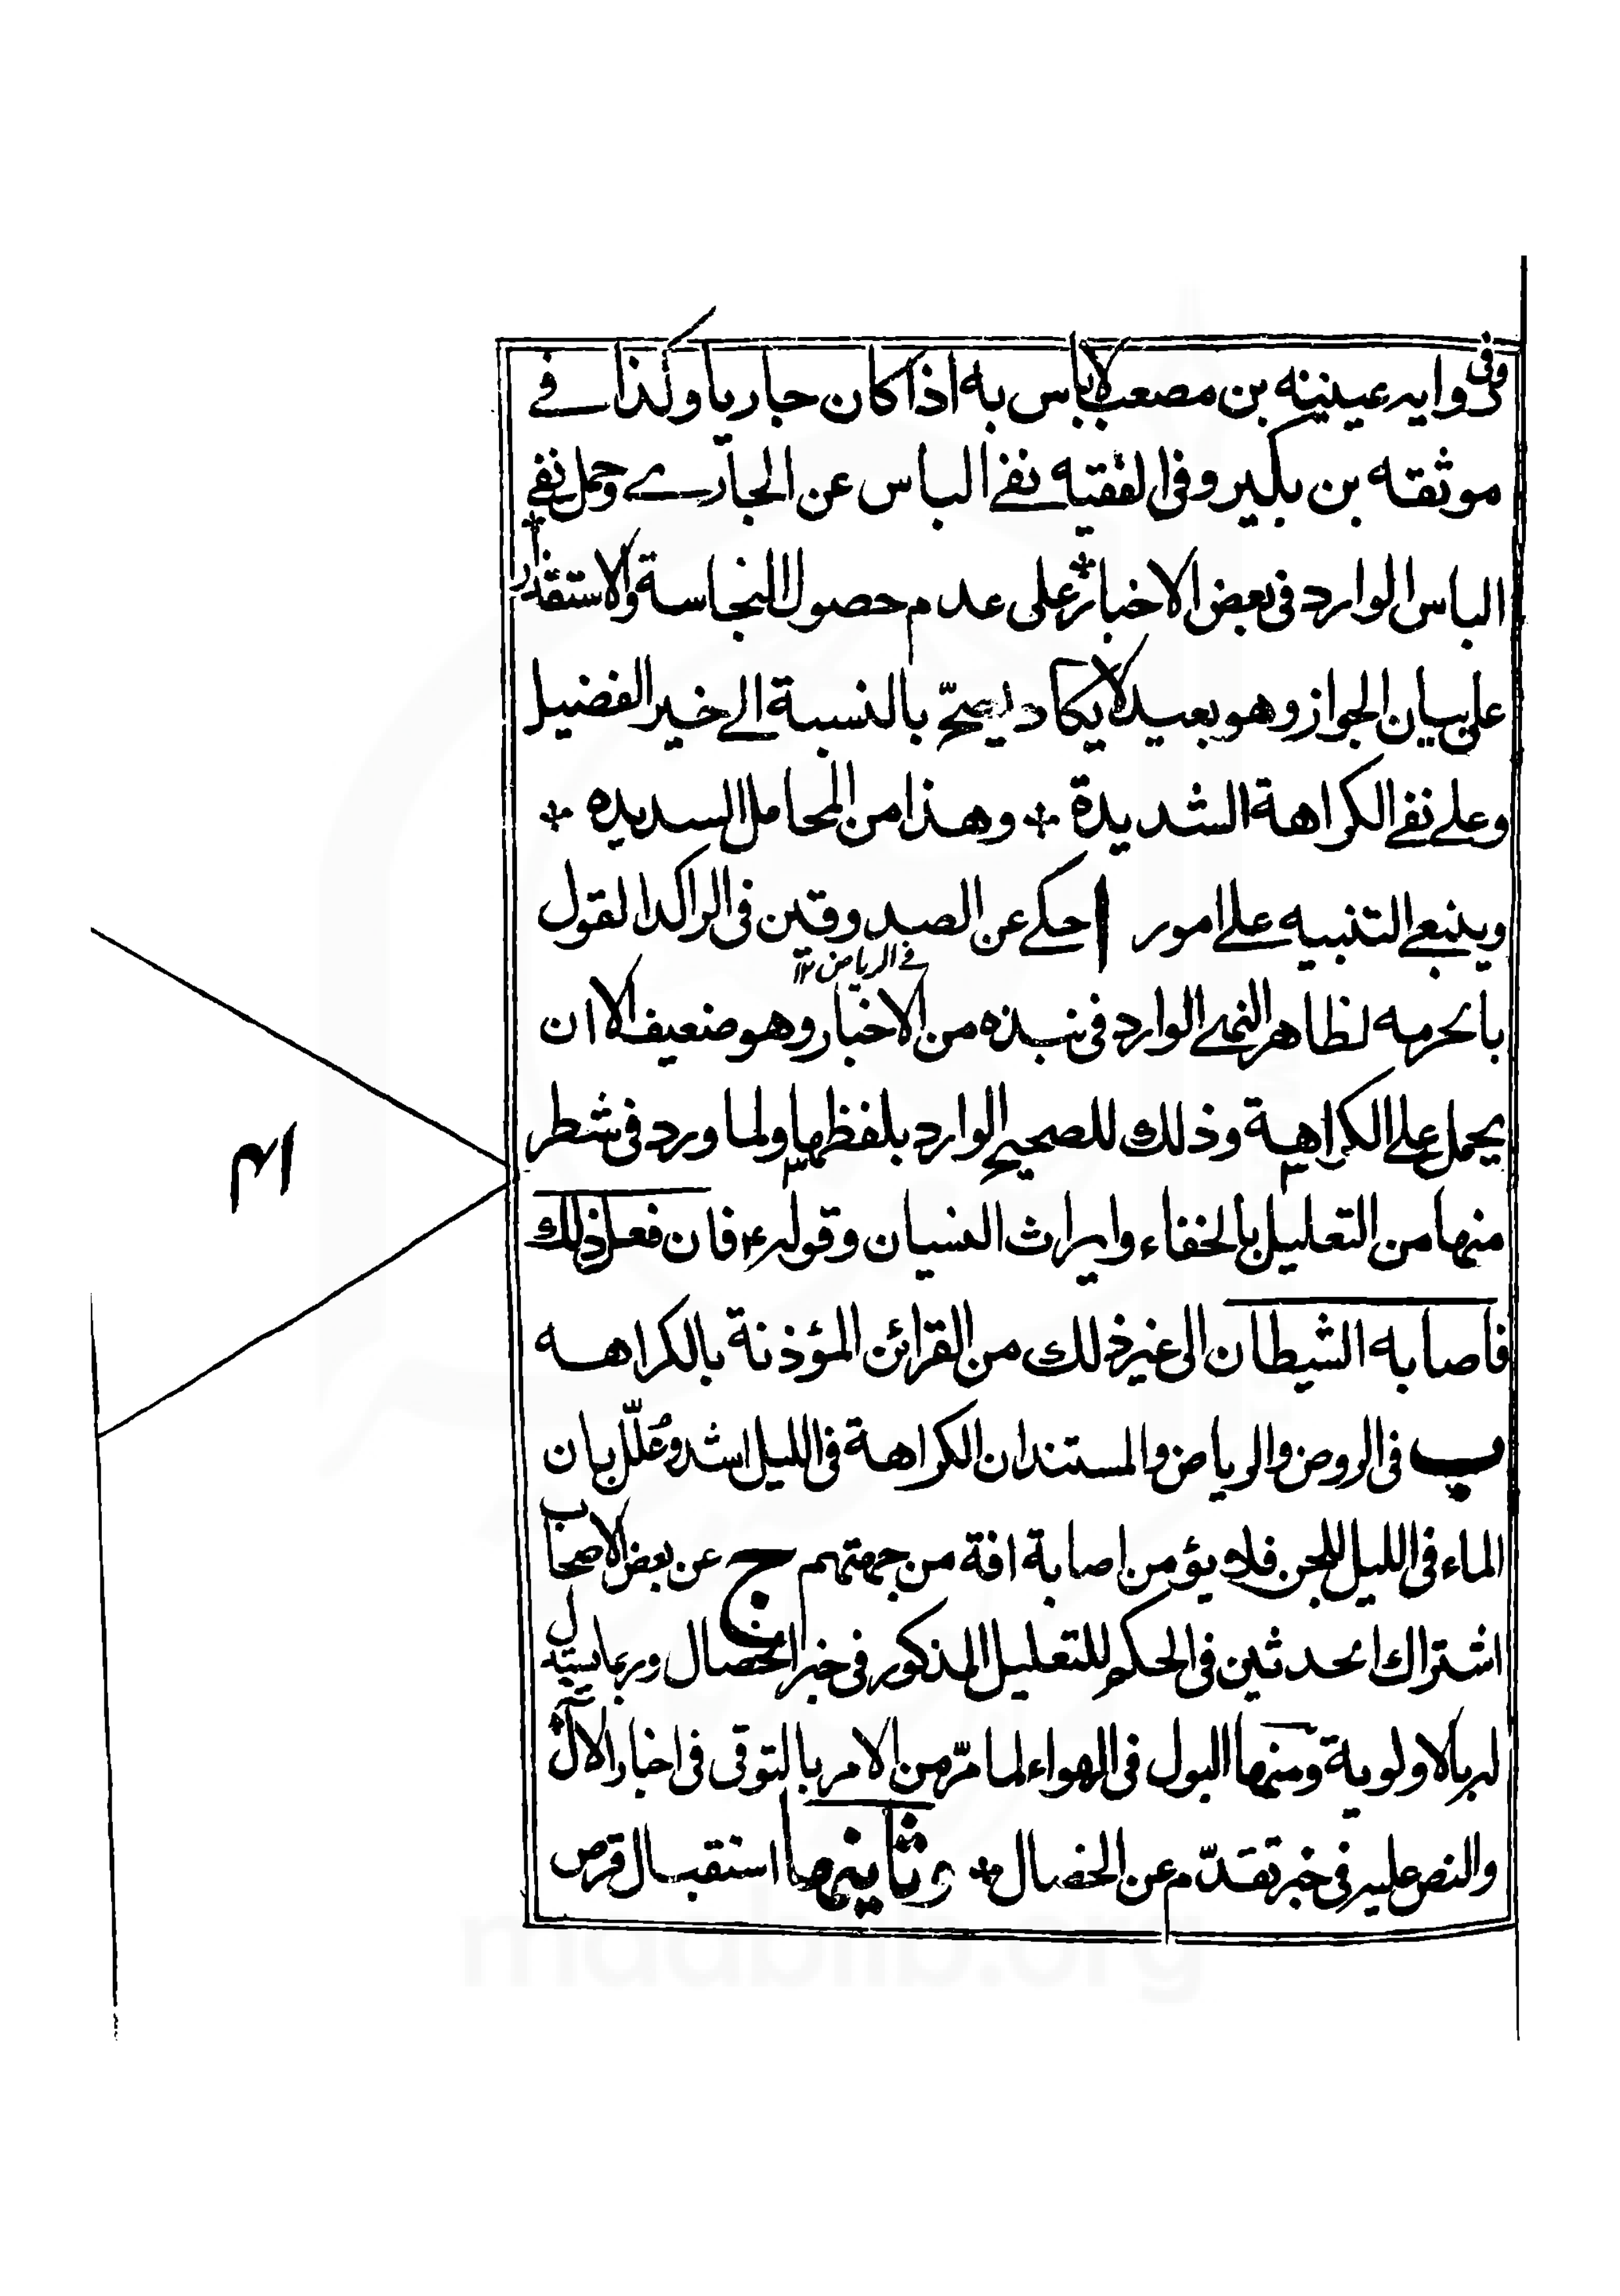 وفی روایه عیینه بن مصعب لاباس به اذا کان جاریا وکذا فے
موثقه بن بکیر وفی الفقیه نفے الباس عن الجارے وحمل نفے
الباس الوارد فی بعض الاخبار علی عدم حصول النجاسة والاستقذار
علی بیان الجواز وهو بعید لایکاد یصحّ بالنسبة الے خیر الفضیل
وعلے نفے الکراهة الشدیدة وهذا من المحامل السدیده
وینبغے التنبیه علے امور ا حکے عن الصدوقین فی الراکد القول
فے الریاض ۱۲
بالحرمه لظاهر النهے الوارد فی نبذه من الاخبار وهو ضعیف الا ان
یحمل علے الکراهة وذلك للصحیح الوارد بلفظها ولما ورد فی شطر
منها من التعلیل بالخفاء وایراث النسیان وقوله ع فان فعل ذلك
فاصابه الشیطان الی غیر ذلك من القرائن المؤذنة بالکراهه
ب فی الروض والریاض والمستند ان الکراهة فی اللیل اشد وعُلّل بان
الماء فی اللیل للجن فلا یؤمن اصابة افة من جهتهم ج عن بعض الاصحاب
اشتراك الحدثین فی الحکم للتعلیل المذکور فی خبر الخصال وربما یستدل
له بالاولویة ومنها البول فی الهواء لما مرّ من الامر بالتوقی فی اخبار الآل
والنص علیه فی خبر تقدّم عن الخصال وثانیها استقبال قرص
۴۱